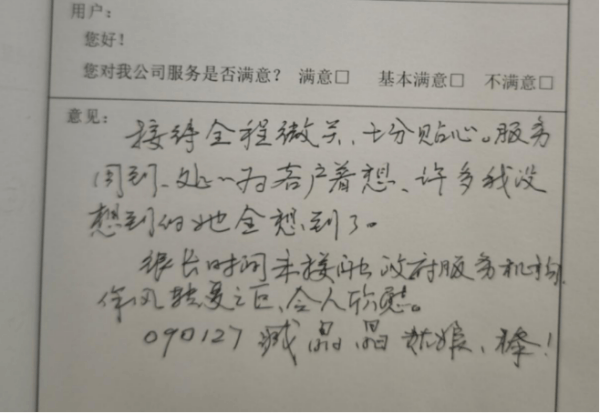 用户:
您好!
您对我公司服务是否满意? 满意□ 基本满意□ 不满意□
意见:
接待全程微关、十分贴心。服务
周到、处处为客户着想、许多我没
想到的她全想到了。
很长时间未接触政府服务机构,
作风转变之巨、令人欣慰。
090127 臧晶晶姑娘、棒!